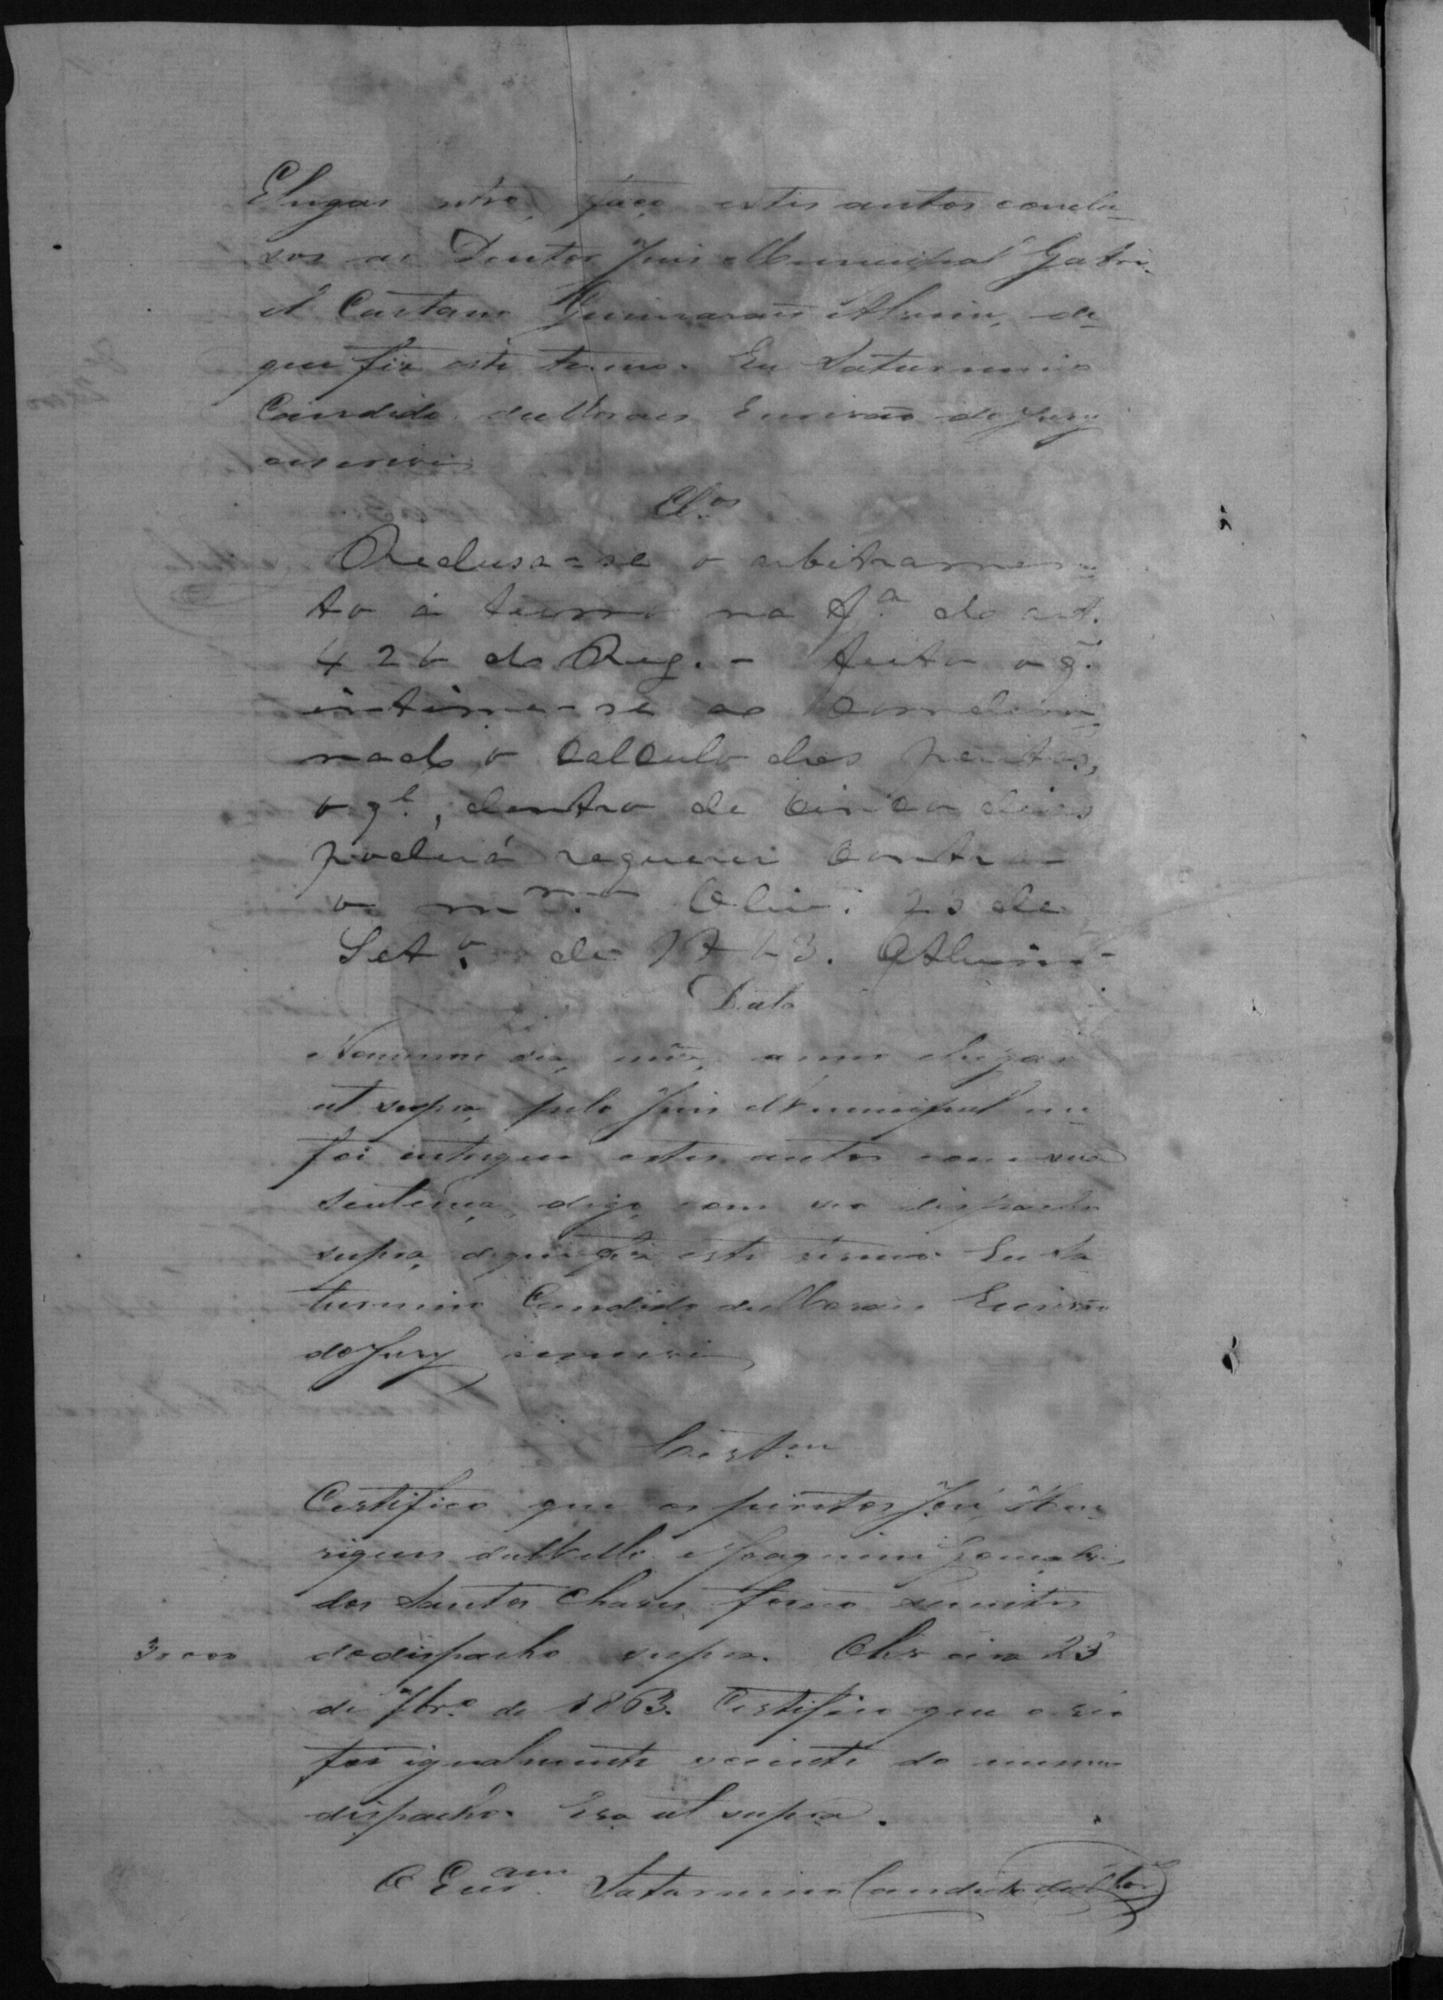 E lugar retro, faço estes autos conclu-
sos ao Doutor Juis Municipal Gabri-
el Caetano Guimarães Alvim, de
que fiz este termo. Eu Saturnino
Candido de Moraes Escrivão do Jury
escrevi
Cl.os
Redusa-se o arbitramen-
to á termo na f.a do art.
426 do Reg. - feito o q.
intime-se ao condem-
nado o calculo dos peritos,
o q.l, dentro de cinco dias
poderá requerer contra
o m.mo Oliv.a 23 de
Set.o de 1863. Alvim
Data
No mesmo dia, mes, anno e lugar
ut supra, pelo Juis Municipal me
foi entregue estes autos com sua
sentença, digo com seo despacho
supra, de que fiz este termo. Eu Sa
turnino Candido de Moraes Escrivão
do Jury escrevi
Cert.am
Certifico que os peritos José Hen-
riques de Mello e Joaquim Gonçalves
dos Santos Chaves forão scientes
3000 do despacho supra. Oliveira 23
de 7br.o de 1863. Certifico que o réo
foi igualmente sciente do mesmo
despacho. Era ut supra.
O Escr.am Saturnino Candido de Mor.es